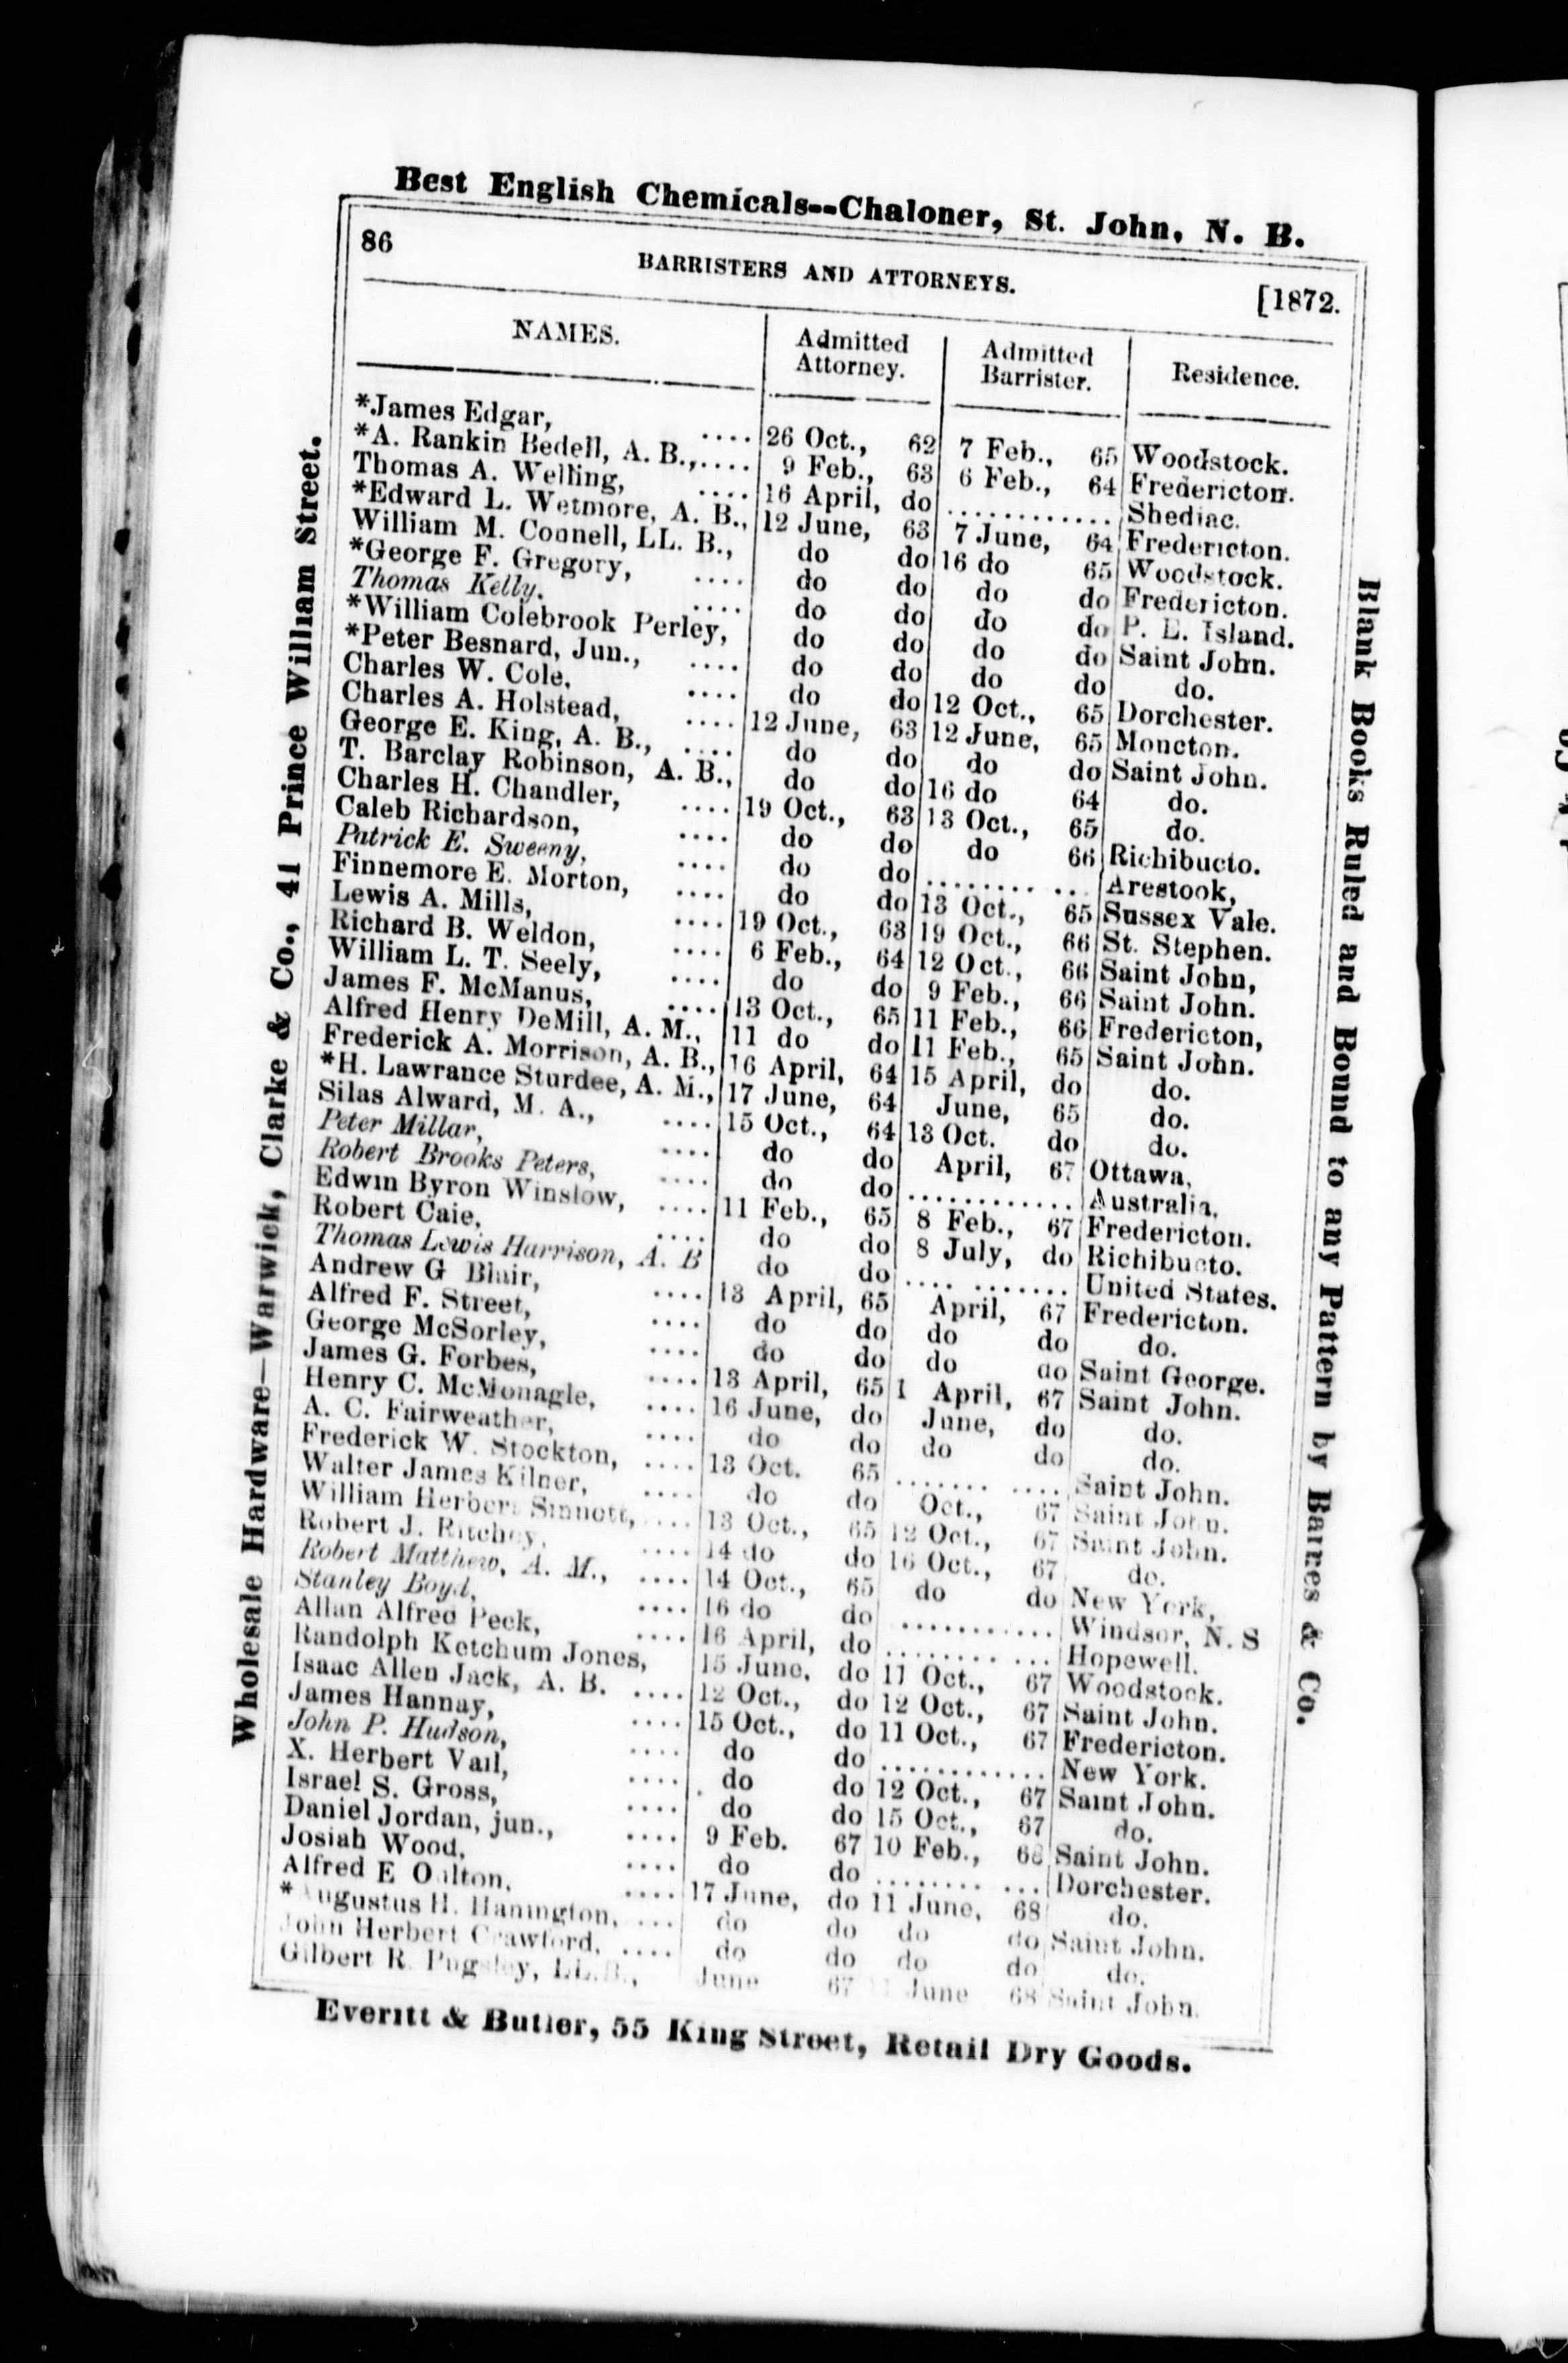 Best English Chemicals--Chaloner, St. John, N. B.
86 BARRISTERS AND ATTORNEYS. [1872.
NAMES. Admitted Attorney. Admitted Barrister. Residence.
*James Edgar, .... 26 Oct., 62 7 Feb., 65 Woodstock.
*A. Rankin Bedell, A. B.,.... 9 Feb., 63 6 Feb., 64 Fredericton.
Thomas A. Welling, .... 16 April, do ............ Shediac.
*Edward L. Wetmore, A. B., 12 June, 63 7 June, 64 Fredericton.
William M. Connell, LL. B., do do 16 do 65 Woodstock.
*George F. Gregory, .... do do do do Fredericton.
Thomas Kelly. .... do do do do P. E. Island.
*William Colebrook Perley, do do do do Saint John.
*Peter Besnard, Jun., .... do do do do do.
Charles W. Cole, .... do do 12 Oct., 65 Dorchester.
Charles A. Holstead, .... 12 June, 63 12 June, 65 Moncton.
George E. King, A. B., .... do do do do Saint John.
T. Barclay Robinson, A. B., do do 16 do 64 do.
Charles H. Chandler, .... 19 Oct., 63 13 Oct., 65 do.
Caleb Richardson, .... do do do 66 Richibucto.
Patrick E. Sweeny, .... do do ............ Arestook,
Finnemore E. Morton, .... do do 13 Oct., 65 Sussex Vale.
Lewis A. Mills, .... 19 Oct., 63 19 Oct., 66 St. Stephen.
Richard B. Weldon, .... 6 Feb., 64 12 Oct., 66 Saint John,
William L. T. Seely, .... do do 9 Feb., 66 Saint John.
James F. McManus, .... 13 Oct., 65 11 Feb., 66 Fredericton,
Alfred Henry DeMill, A. M., 11 do do 11 Feb., 65 Saint John.
Frederick A. Morrison, A. B., 16 April, 64 15 April, do do.
*H. Lawrance Sturdee, A. M., 17 June, 64 June, 65 do.
Silas Alward, M. A., .... 15 Oct., 64 13 Oct. do do.
Peter Millar, .... do do April, 67 Ottawa,
Robert Brooks Peters, .... do do ............ Australia,
Edwin Byron Winslow, .... 11 Feb., 65 8 Feb., 67 Fredericton.
Robert Caie, .... do do 8 July, do Richibucto.
Thomas Lewis Harrison, A. B do do ............ United States.
Andrew G Blair, .... 13 April, 65 April, 67 Fredericton.
Alfred F. Street, .... do do do do do.
George McSorley, .... do do do do Saint George.
James G. Forbes, .... 13 April, 65 1 April, 67 Saint John.
Henry C. McMonagle, .... 16 June, do June, do do.
A. C. Fairweather, .... do do do do do.
Frederick W. Stockton, .... 13 Oct. 65 ............ Saint John.
Walter James Kilner, .... do do Oct., 67 Saint John.
William Herbert Sinnott, .... 13 Oct., 65 12 Oct., 67 Saint John.
Robert J. Ritchey, .... 14 do do 16 Oct., 67 do.
Robert Matthew, A. M., .... 14 Oct., 65 do do New York,
Stanley Boyd, .... 16 do do ............ Windsor, N. S
Allan Alfred Peck, .... 16 April, do ............ Hopewell.
Randolph Ketchum Jones, 15 June, do 11 Oct., 67 Woodstock.
Isaac Allen Jack, A. B. .... 12 Oct., do 12 Oct., 67 Saint John.
James Hannay, .... 15 Oct., do 11 Oct., 67 Fredericton.
John P. Hudson, .... do do ............ New York.
X. Herbert Vail, .... do do 12 Oct., 67 Saint John.
Israel S. Gross, .... do do 15 Oct., 67 do.
Daniel Jordan, jun., .... 9 Feb. 67 10 Feb., 68 Saint John.
Josiah Wood, .... do do ............ Dorchester.
Alfred E Oulton, .... 17 June, do 11 June, 68 do.
*Augustus H. Hanington, .... do do do do Saint John.
John Herbert Crawford, .... do do do do do.
Gilbert R. Pugsley, LL.B., June 67 June 68 Saint John.
Everitt & Butler, 55 King Street, Retail Dry Goods.
Wholesale Hardware—Warwick, Clarke & Co., 41 Prince William Street.
Blank Books Ruled and Bound to any Pattern by Barnes & Co.